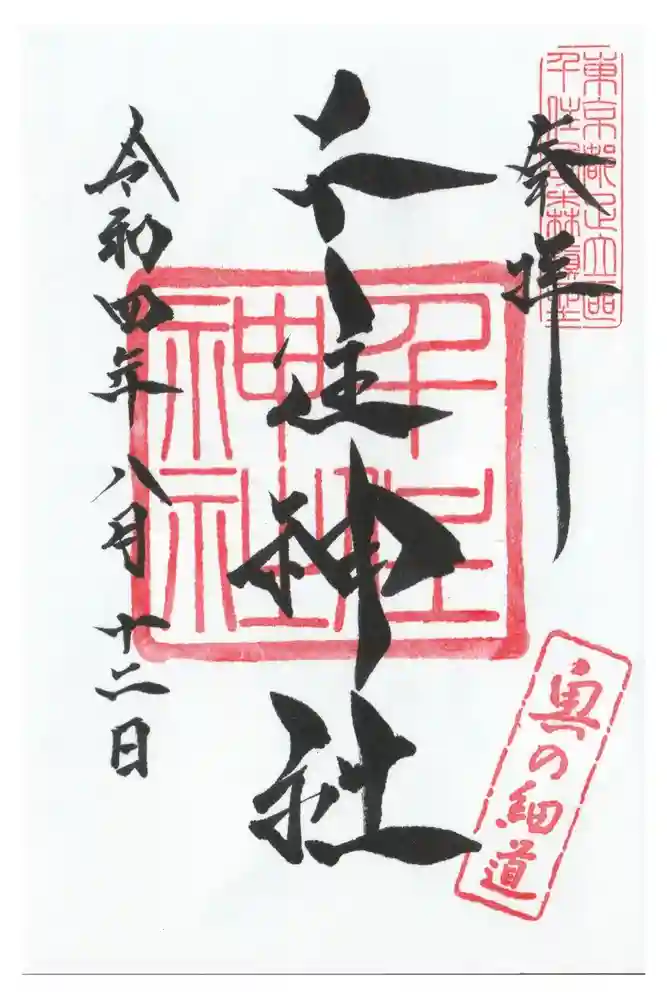 奉拝
千住神社
令和四年八月十二日
千住神社
東京都足立区
千住宮
奥の細道